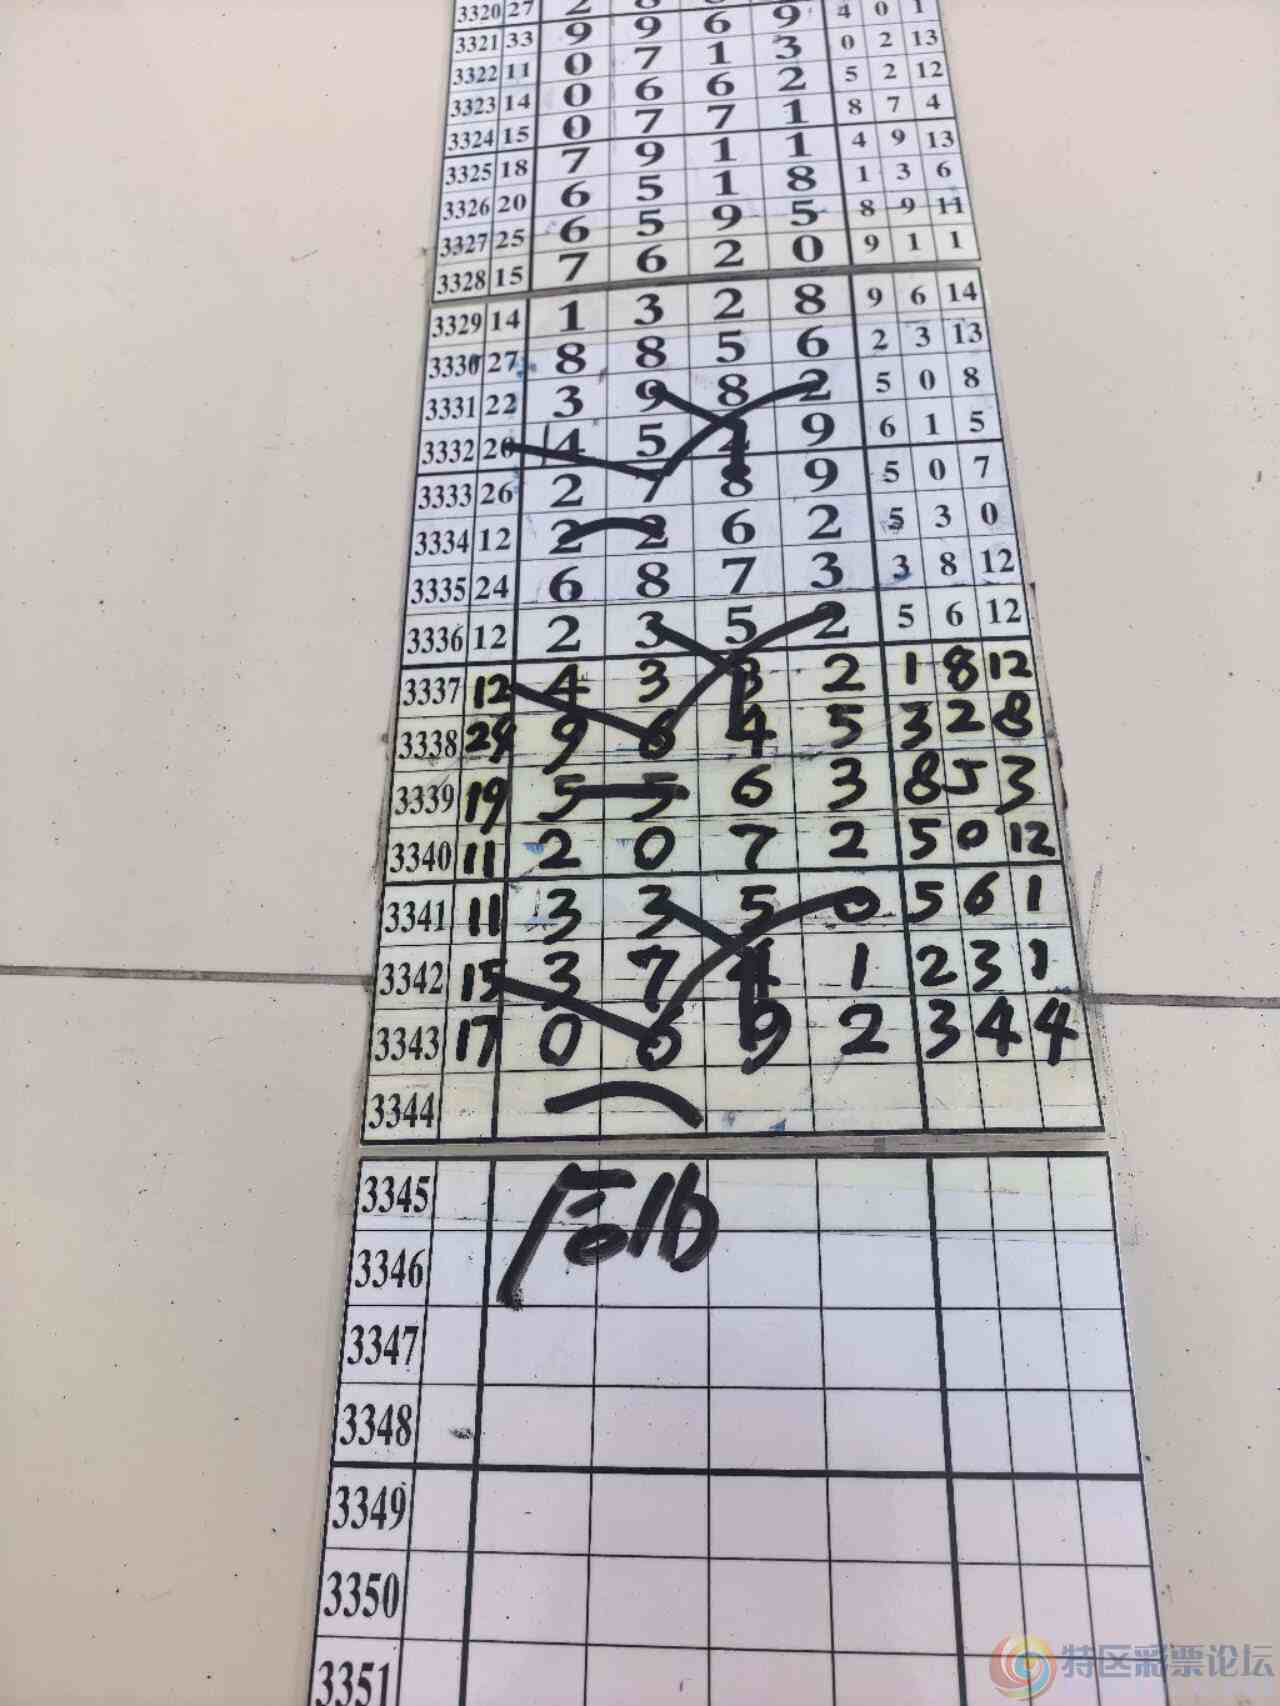 3320 27 2 8 4 0 1
3321 33 9 9 6 9 0 2 13
3322 11 0 7 1 3 5 2 12
3323 14 0 6 6 2 8 7 4
3324 15 0 7 7 1 4 9 13
3325 18 7 9 1 1 1 3 6
3326 20 6 5 1 8 8 9 11
3327 25 6 5 9 5 9 1 1
3328 15 7 6 2 0
3329 14 1 3 2 8 9 6 14
3330 27 8 8 5 6 2 3 13
3331 22 3 9 8 2 5 0 8
3332 20 4 5 2 9 6 1 5
3333 26 2 7 8 9 5 0 7
3334 12 2 2 6 2 5 3 0
3335 24 6 8 7 3 3 8 12
3336 12 2 3 5 2 5 6 12
3337 12 4 3 3 2 1 8 12
3338 24 9 6 4 5 3 2 8
3339 19 5 5 6 3 8 5 3
3340 11 2 0 7 2 5 0 12
3341 11 3 3 5 0 5 6 1
3342 15 3 7 4 1 2 3 1
3343 17 0 6 9 2 3 4 4
3344
3345
3346
3347
3348
3349
3350
3351
特区彩票论坛